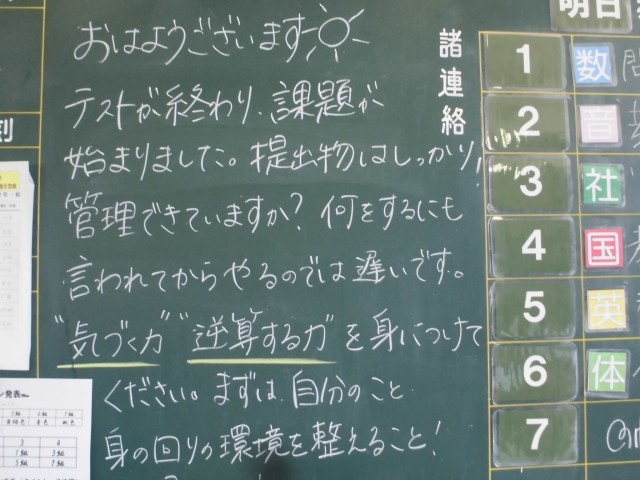 おはようございます
テストが終わり、課題が
始まりました。提出物はしっかり
管理できていますか？何をするにも
言われてからやるのでは遅いです。
"気づく力" "逆算する力"を身につけて
ください。まずは、自分のこと
身の回りの環境を整えること！
諸連絡
明日
1 数
2 音
3 社
4 国
5 英
6 体
7
刻
発表